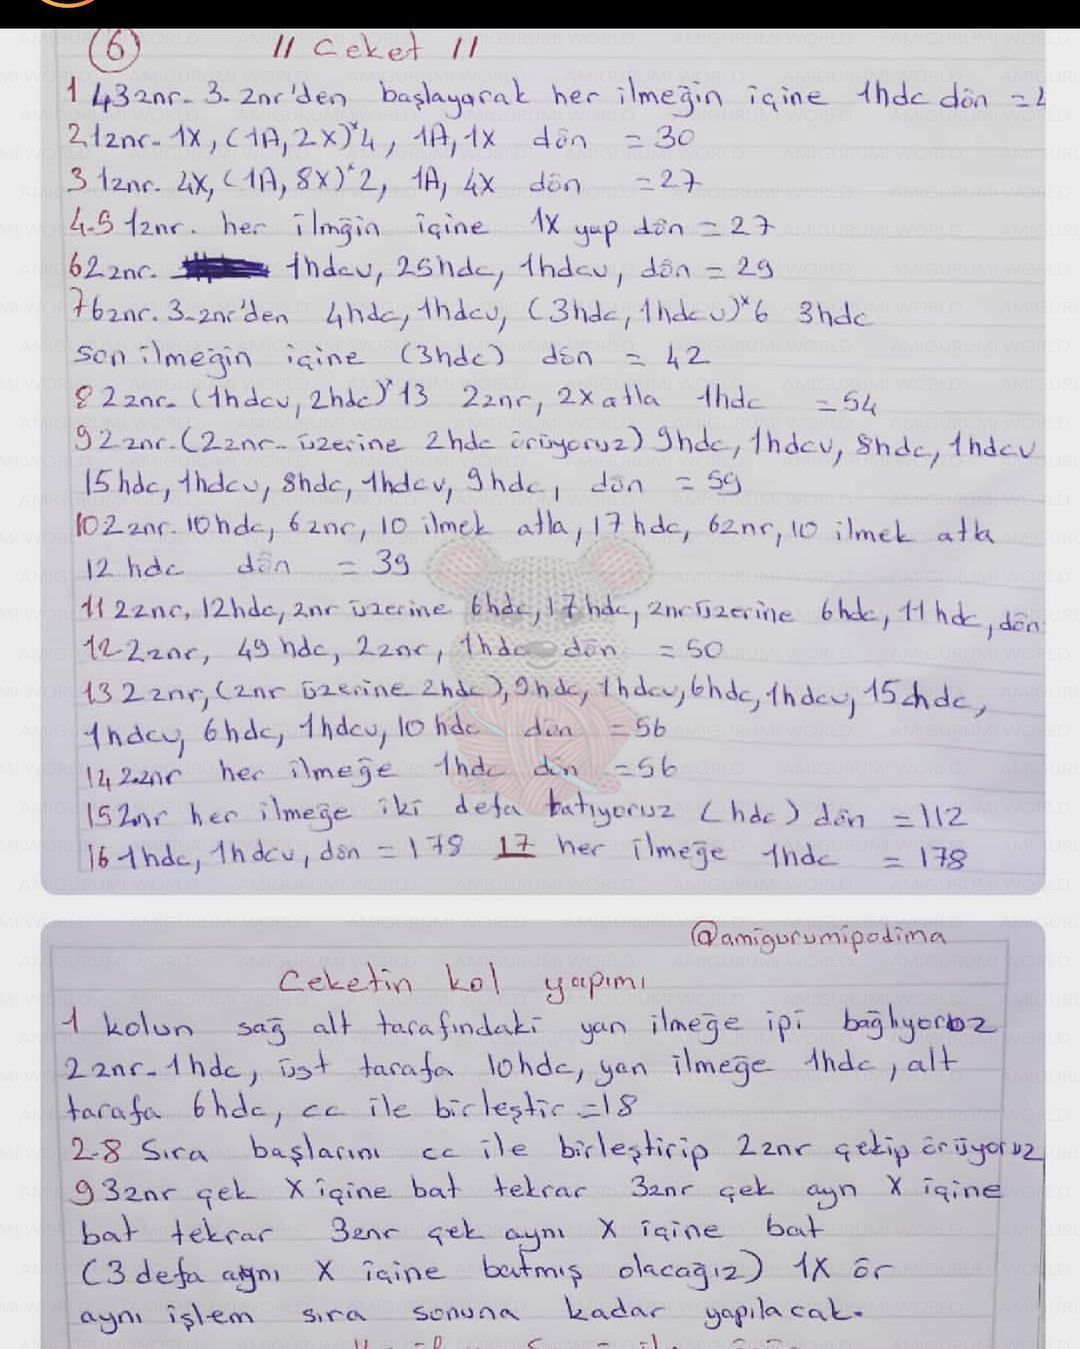 6 // Ceket //
1 43znr. 3. znr'den başlayarak her ilmeğin içine 1hdc dön =4
2 1znr- 1X, (1A, 2X)*4, 1A, 1X dön = 30
3 1znr. 4X, (1A, 8X)*2, 1A, 4X dön =27
4-5 1znr. her ilmğin içine 1X yap dön = 27
6 2znr. 1hdcv, 25hdc, 1hdcv, dön = 29
7 6znr. 3-znr'den 4hdc, 1hdcv, (3hdc, 1hdcv)*6 3hdc
son ilmeğin içine (3hdc) dön = 42
8 2znr. (1hdcv, 2hdc)*13 2znr, 2x atla 1hdc =54
9 2znr.(2znr- üzerine 2hdc örüyoruz) 9hdc, 1hdcv, 8hdc, 1hdcv
15hdc, 1hdcv, 8hdc, 1hdcv, 9hdc, dön = 59
10 2znr. 10hdc, 6znr, 10 ilmek atla, 17hdc, 6znr, 10 ilmek atla
12 hdc dön = 39
11 2znr, 12hdc, znr üzerine 6hdc, 17hdc, znr üzerine 6hdc, 11hdc, dön
12-2znr, 49hdc, 2znr, 1hdc dön = 50
13 2znr, (znr üzerine 2hdc), 9hdc, 1hdcv, 6hdc, 1hdcv, 15hdc,
1hdcv, 6hdc, 1hdcv, 10hdc dön =56
14 2znr her ilmeğe 1hdc dön =56
15 znr her ilmeğe iki defa batıyoruz (hdc) dön =112
16 1hdc, 1hdcv, dön = 178 17 her ilmeğe 1hdc = 178
@amigurumipodima
Ceketin kol yapımı
1 kolun sağ alt tarafındaki yan ilmeğe ipi bağlıyoruz
2znr- 1hdc, üst tarafa 10hdc, yan ilmeğe 1hdc, alt
tarafa 6hdc, cc ile birleştir =18
2-8 Sıra başlarını cc ile birleştirip 2znr çekip örüyoruz
9 3znr çek X içine bat tekrar 3znr çek ayn X içine
bat tekrar 3znr çek aynı X içine bat
(3 defa aynı X içine batmış olacağız) 1X ör
aynı işlem sıra sonuna kadar yapılacak.